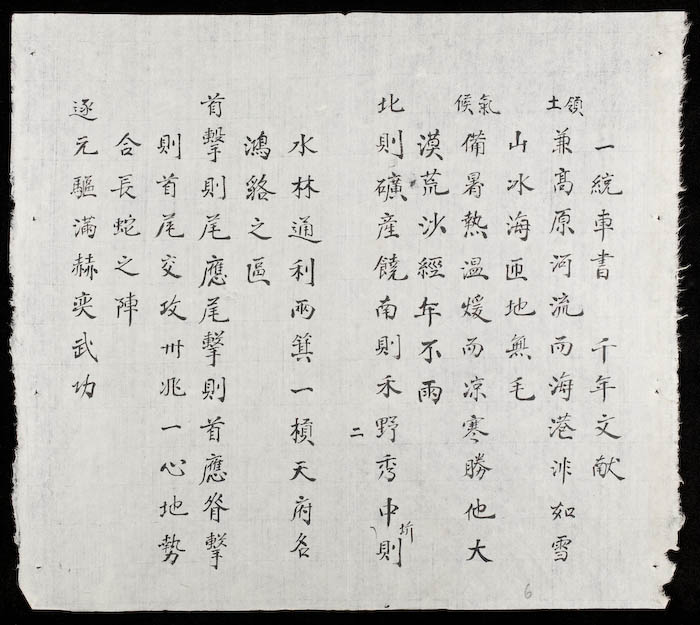 一統車書 千年文献
領土兼高原河流而海港非如雪
山冰海匝地無毛
氣候備暑熱溫煖而凉寒勝他大
漠荒沙經年不雨
北則礦産饒南則禾野秀中圻則
二
水林通利兩箕一槓天府名
鴻貉之區
首擊則尾應尾擊則首應脊擊
則首尾交攻卅兆一心地勢
合長蛇之陣
逐元驅滿赫奕武功
6